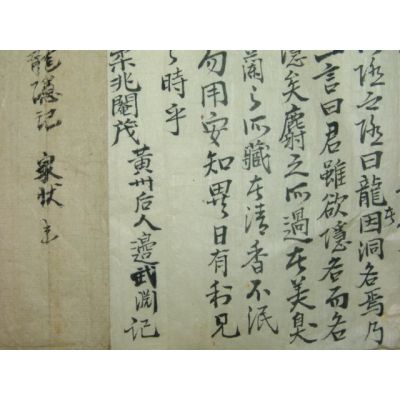 之隱曰龍因洞名焉乃
言曰君雖欲隱名而名
隱矣麝之所過在美臭
蘭之所藏在清香不泯
勿用安知異日有利見
時乎
柔兆閹茂 黃州后人邊武淵記
龍隱記 家狀